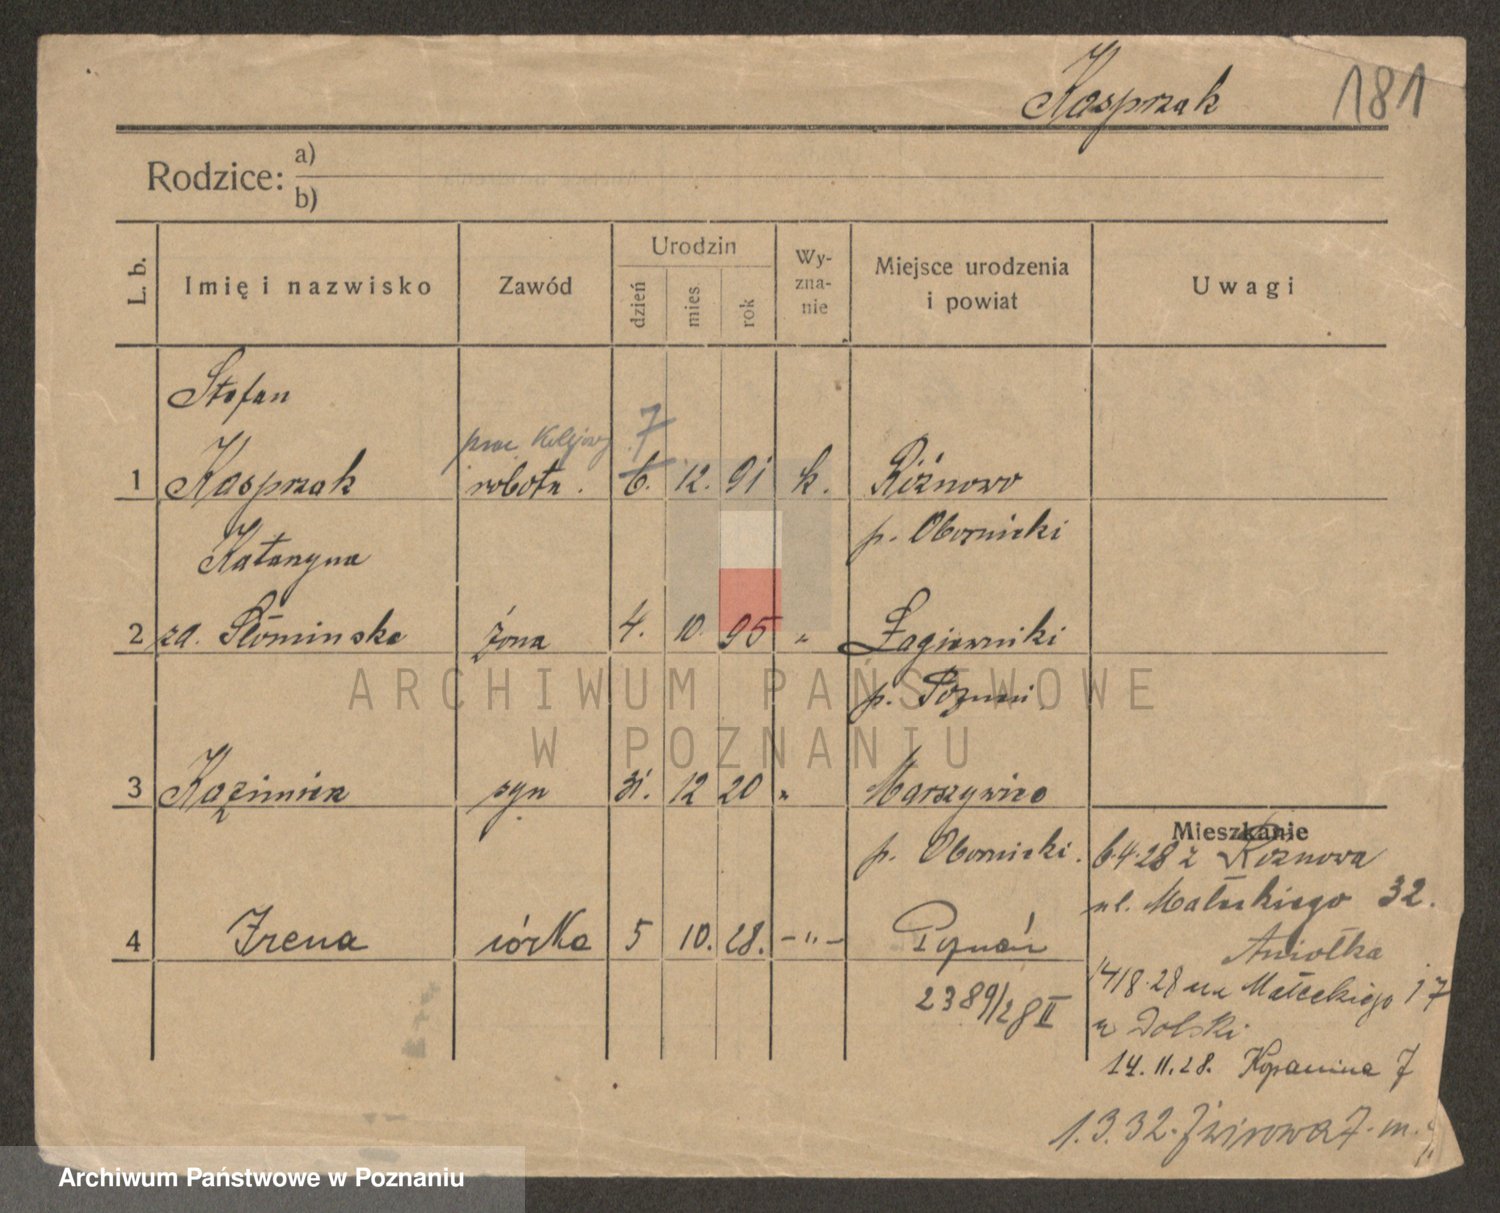 Kasprzak 181
Rodzice: a)
b)
L. b. Imię i nazwisko Zawód Urodzin dzień mies. rok Wy-zna-nie Miejsce urodzenia i powiat Uwagi
Stefan
prac. Kolejowy 7
1 Kasprzak robotn. 6. 12. 91 k. Różnowo
Katarzyna p. Obornicki
2 zd. Słomińska żona 4. 10. 95 „ Łagiewniki
p. Poznań
3 Kazimierz syn 31. 12 20 „ Marszywice
Mieszkanie
p. Obornicki. 6.4.28 z Rożnowa
ul. Małeckiego 32.
4 Irena córka 5 10. 28. –„– Poznań
Aniołka
2389/28 II 14/8.28 Małeckiego 17
Dolski
14.11.28. Kopanina 7
1.3.32. Żwirowa 7. m.
ARCHIWUM PAŃSTWOWE
W POZNANIU
Archiwum Państwowe w Poznaniu